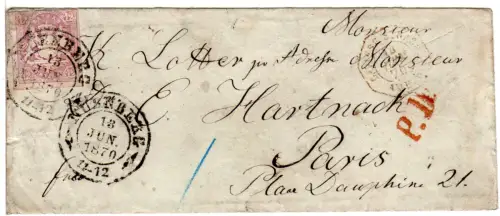 Monsieur
K. Lotter per Adresse Monsieur
E. Hartnack
Paris
Place Dauphine 21.
NÜRNBERG
18
JUN.
1870
11-12
P.D.